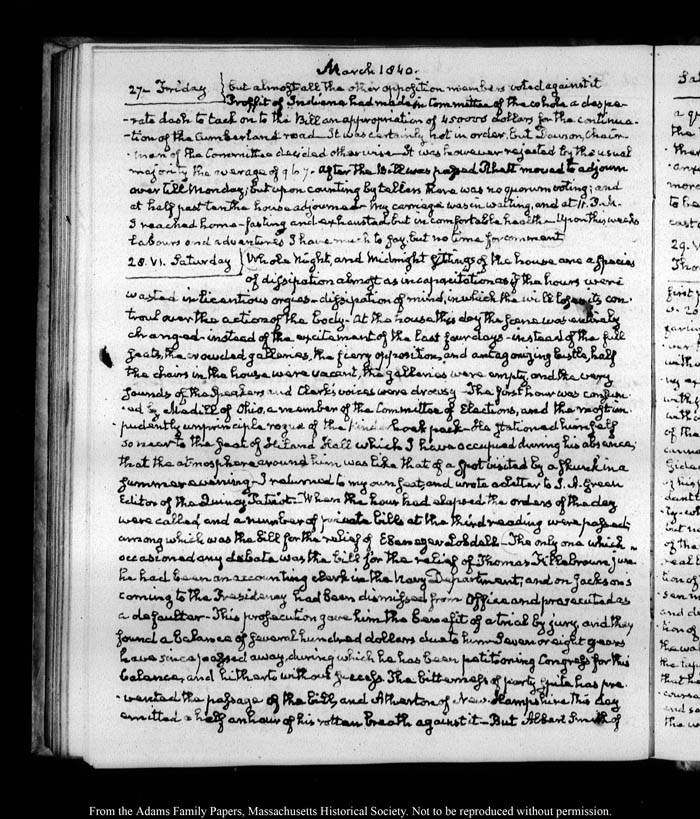 March 1840.
27. Friday but almost all the other opposition members voted against it
Proffit of Indiana had made in Committee of the whole a despe-
-rate dash to tack on to the Bill an appropriation of 450000 dollars for the continua-
-tion of the Cumberland road. It was certainly not in order, but Dawson, Chair-
-man of the Committee decided otherwise. It was however rejected by the usual
majority the average of 9 to 7. After the Bill was passed Rhett moved to adjourn
over till Monday; but upon counting by tellers there was no quorum voting; and
at half past ten the house adjourned. My carriage was in waiting, and at 11.
I reached home—fasting and exhausted but in comfortable health—Upon this week's
labours and adventures I have much to say, but no time for comment
28. VI. Saturday Whole Night, and Midnight sittings of the house are a species
of dissipation almost as incapacitation as if the hours were
wasted in licentious orgies—dissipation of mind, in which the will loses its con-
troul over the action of the body—At the house this day the scene was entirely
changed—instead of the excitement of the last four days—instead of the full
seats, the crowded galleries, the fiery opposition, and antagonizing bustle, half
the chairs in the house were vacant, the galleries were empty, and the very
sounds of the Speakers and Clerk's voices were drowsy—The first hour was consum-
-ed by Medill of Ohio, a member of the Committee of Elections, and the most im-
pudently unprinciple rogue of the Kinderhook pack—He stationed himself
so near to the seat of Hiland Hall which I have occupied during his absence,
that the atmosphere around him was like that of a spot visited by a skunk in a
summer evening—I returned to my own seat, and wrote a letter to J. A. Green
Editor of the Quincy Patriot—When the hour had elapsed the orders of the day
were called and a number of private bills at the third reading were passed;
among which was the bill for the relief of Ebenezer Lobdell—The only one which
occasioned any debate was the bill for the relief of Thomas Fillebrown, junr.
he had been an accounting clerk in the Navy Department; and on Jackson's
coming to the Presidency had been dismissed from Office and prosecuted as
a defaulter—This prosecution gave him the benefit of a trial by jury, and they
found a balance of several hundred dollars due to him. Seven or eight years
have since passed away, during which he has been petitioning Congress for this
balance, and hitherto without success. The bitterness of party spite has pre-
-vented the passage of the bill, and Atherton of New Hampshire this day
emitted a half an hour of his rotten breath against it—But Albert Smith of
From the Adams Family Papers, Massachusetts Historical Society. Not to be reproduced without permission.